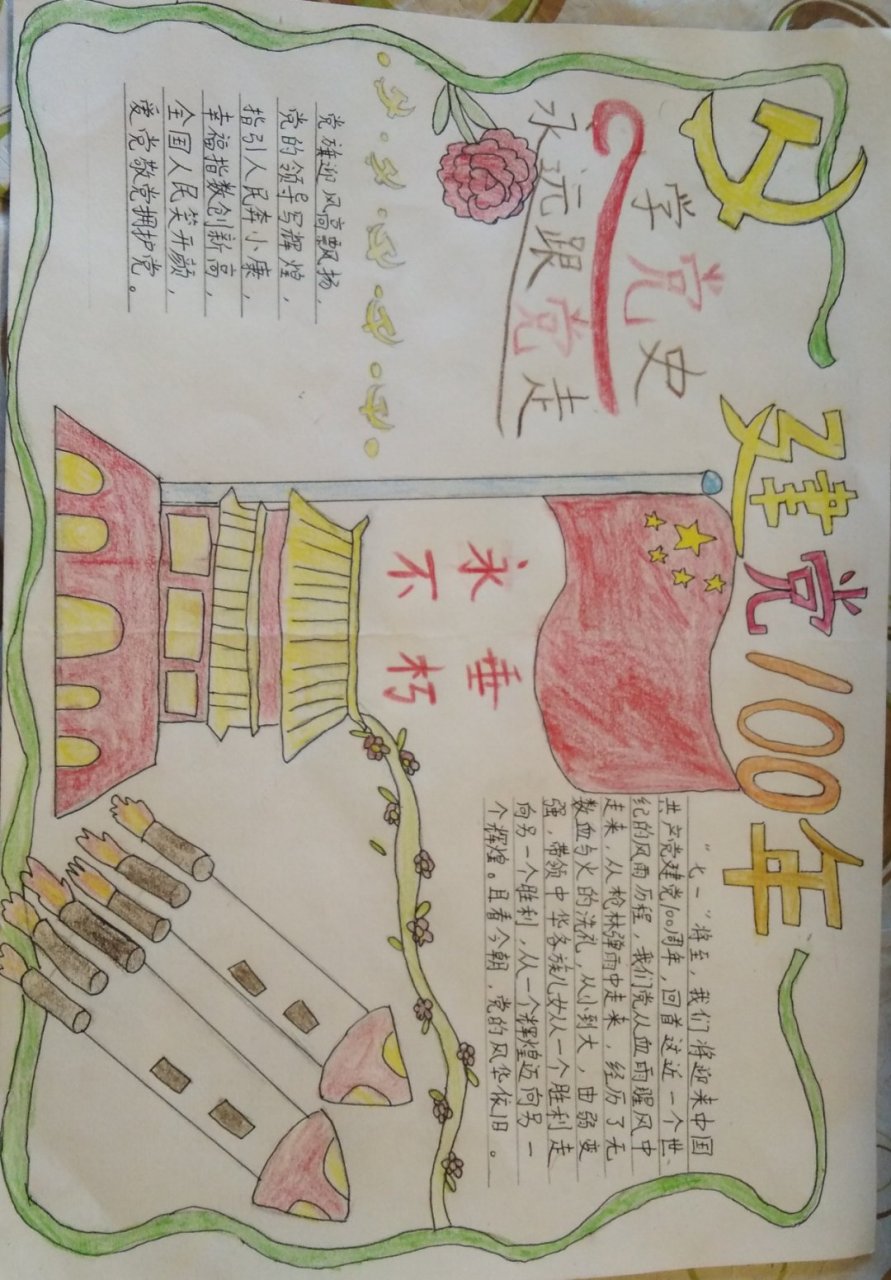 建党100年
学党史
永远跟党走
党旗迎风高飘扬，
党的领导写辉煌，
指引人民奔小康，
幸福指数创新高，
全国人民笑开颜，
爱党敬党拥护党。
永垂
不朽
“七一”将至，我们将迎来中国
共产党建党100周年，回首这近一个世
纪的风雨历程，我们党从血雨腥风中
走来，从枪林弹雨中走来，经历了无
数血与火的洗礼，从小到大，由弱变
强，带领中华各族儿女从一个胜利走
向另一个胜利，从一个辉煌迈向另一
个辉煌。且看今朝，党的风华依旧。